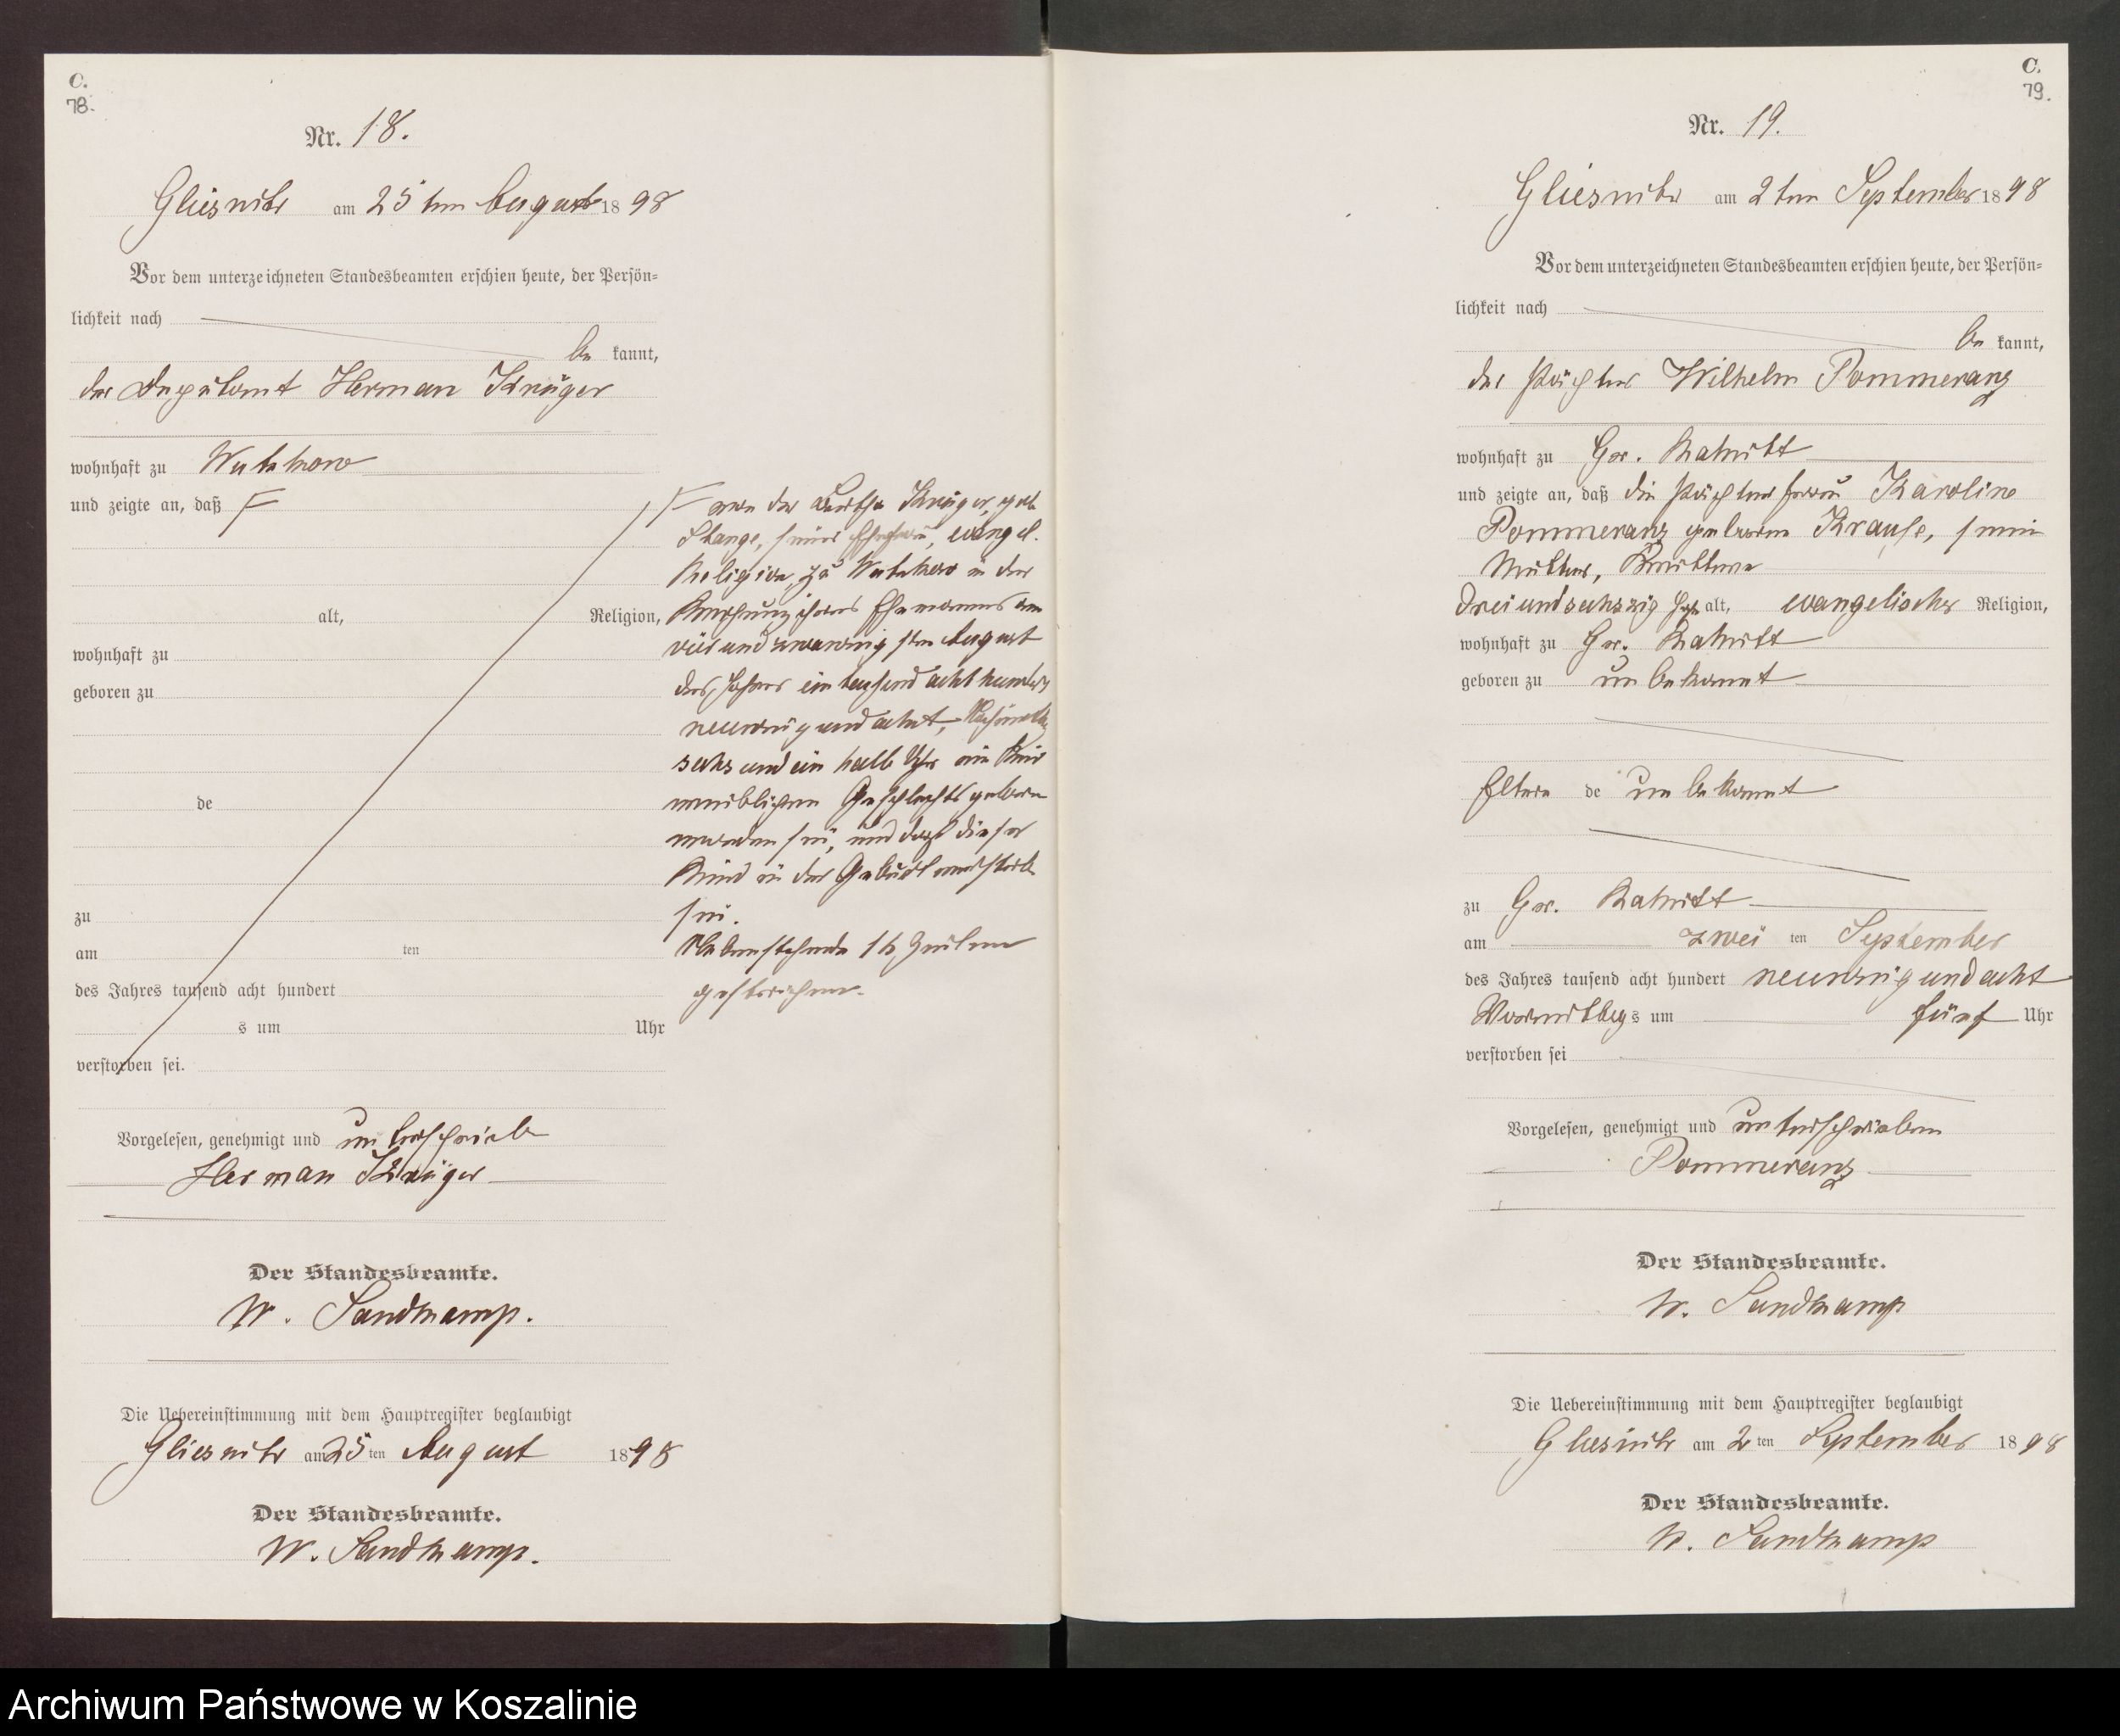 C.
78.
Nr. 18.
Gliesnitz am 25 ten August 1898
Vor dem unterzeichneten Standesbeamten erschien heute, der Persön-
lichkeit nach
be kannt,
der Deputant Herman Krüger
wohnhaft zu Wutzkow
und zeigte an, daß F
alt, Religion,
wohnhaft zu
geboren zu
de
zu
am ten
des Jahres tausend acht hundert
s um Uhr
verstorben sei.
F von der Bertha Krüger, geb.
Stange, seiner Ehefrau, evangel.
Religion, zu Wutzkow in der
Wohnung ihres Ehemannes am
vier und zwanzigsten August
des Jahres ein tausend acht hundert
neunzig und acht, Nachmittags
sechs und ein halb Uhr ein Kind
weiblichen Geschlechts geboren
worden sei, und daß dieses
Kind in der Geburt verstorben
sei.
Nebenstehende 16 Zeilen
gestrichen.
Vorgelesen, genehmigt und unterschrieben
Herman Krüger
Der Standesbeamte.
W. Sandkamp.
Die Uebereinstimmung mit dem Hauptregister beglaubigt
Gliesnitz am 25 ten August 1898
Der Standesbeamte.
W. Sandkamp.
C.
79.
Nr. 19.
Gliesnitz am 2 ten September 1898
Vor dem unterzeichneten Standesbeamten erschien heute, der Persön-
lichkeit nach
be kannt,
der Pächter Wilhelm Pommeranz
wohnhaft zu Gr.
und zeigte an, daß die Pächterfrau Karoline
Pommeranz geborene Krause, seine
Mutter, Wittwe
drei und sechszig Jahr alt, evangelischer Religion,
wohnhaft zu Gr.
geboren zu unbekannt
Eltern de unbekannt
zu Gr.
am zwei ten September
des Jahres tausend acht hundert neunzig und acht
Vormittags um fünf Uhr
verstorben sei
Vorgelesen, genehmigt und unterschrieben
Pommeranz
Der Standesbeamte.
W. Sandkamp
Die Uebereinstimmung mit dem Hauptregister beglaubigt
Gliesnitz am 2 ten September 1898
Der Standesbeamte.
W. Sandkamp
Archiwum Państwowe w Koszalinie